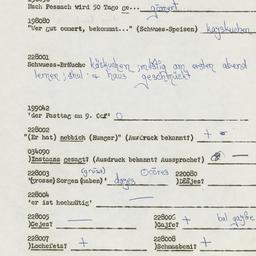 Nach Pessach wird 50 Tage ge... gomert
198080
"Wer gut oomert, bekommt..." (Schwues-Speisen) kayskuchen
228001
Schwuess-Bräuche käskuchen; milchig am ersten abend
lernen; shul & haus geschmückt
199042
'der Fasttag am 9. Oof' O
228002
"(Er hat) nebbich (Hunger)" (Ausdruck bekannt? +
034090
)Instauns gesagt? (Ausdruck bekannt? Aussprache?) —
228003
'(grosse) Sorgen (haben)' dayes
220080
228004
'er ist hochmütig' —
228005
)Gejes? —
228006
)Gajfe? + bal gayfe
228007
)Lochefets? +
228008
)Schmusbeni? +